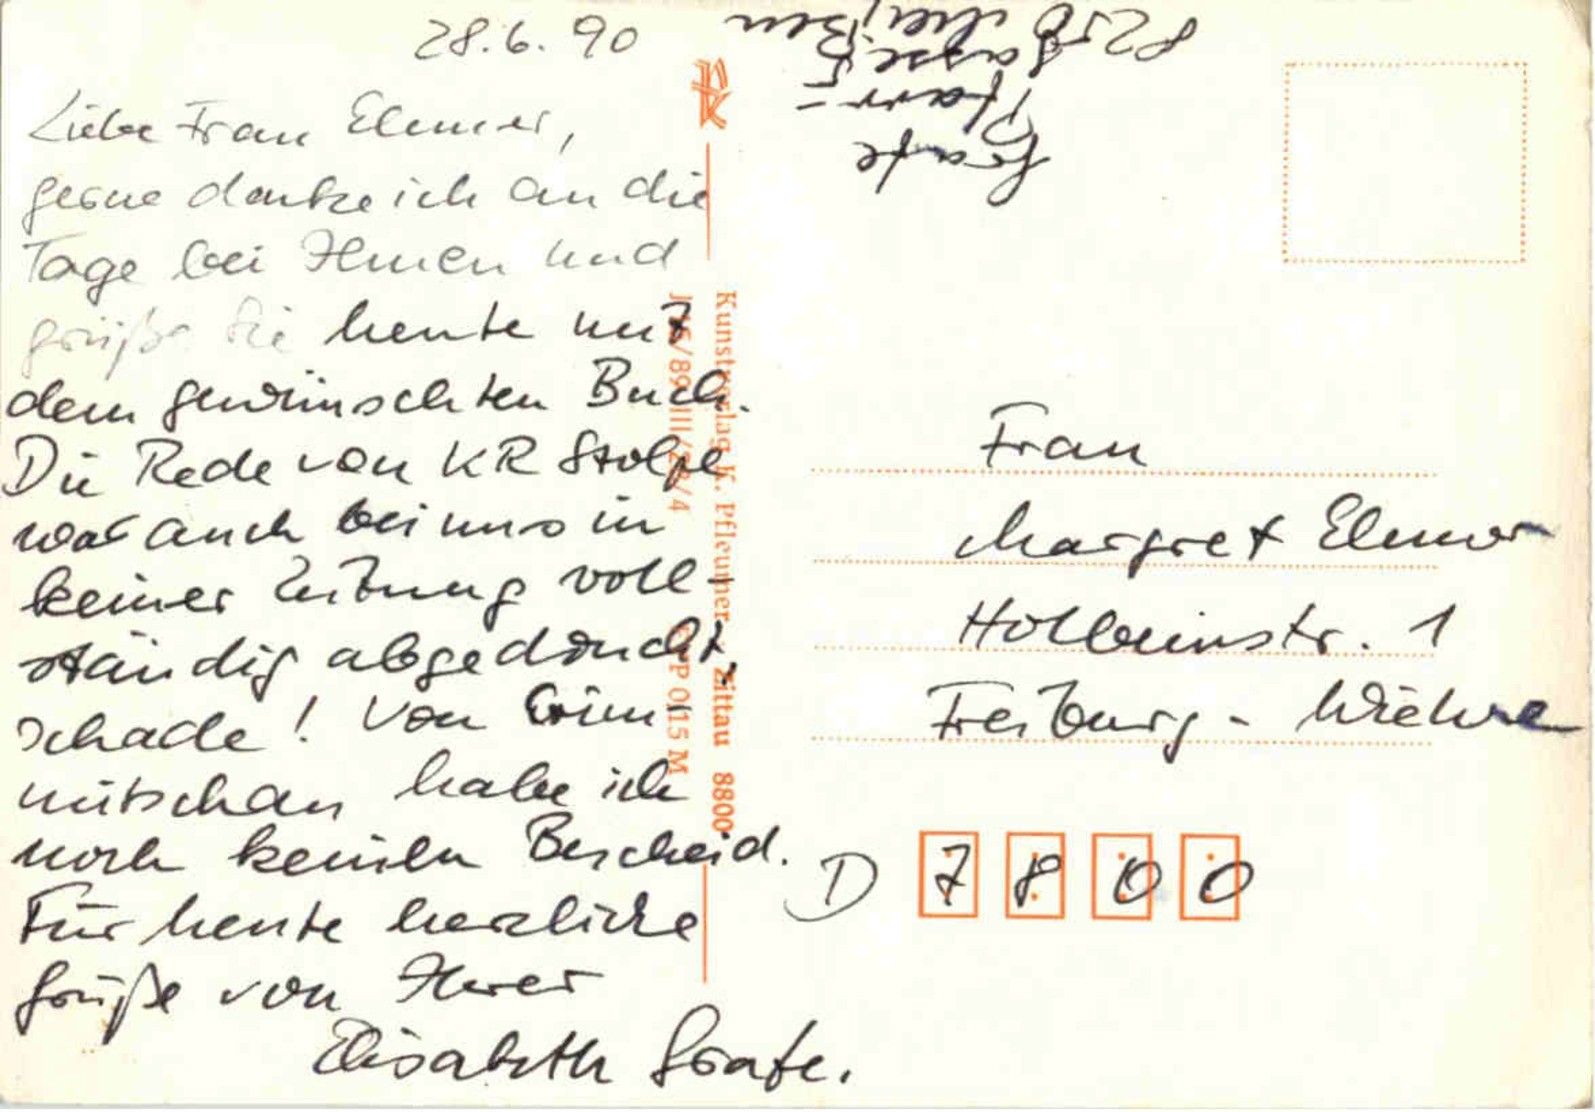 28.6.90
Liebe Frau Elmer,
gerne denke ich an die
Tage bei Ihnen und
grüße Sie heute mit
dem gewünschten Buch.
Die Rede von KR Stolpe
war auch bei uns in
keiner Zeitung voll-
ständig abgedruckt,
schade! Von Crim-
mitschau habe ich
noch keinen Bescheid.
Für heute herzliche
Grüße von Ihrer
Elisabeth Grafe.
Grafe
Pfarr-
gasse 5
8250 Meißen
Kunstverlag K. Pfleumer Zittau 8800
0,15 M
Frau
Margret Elmer
Holbeinstr. 1
Freiburg - Wiehre
D 7800